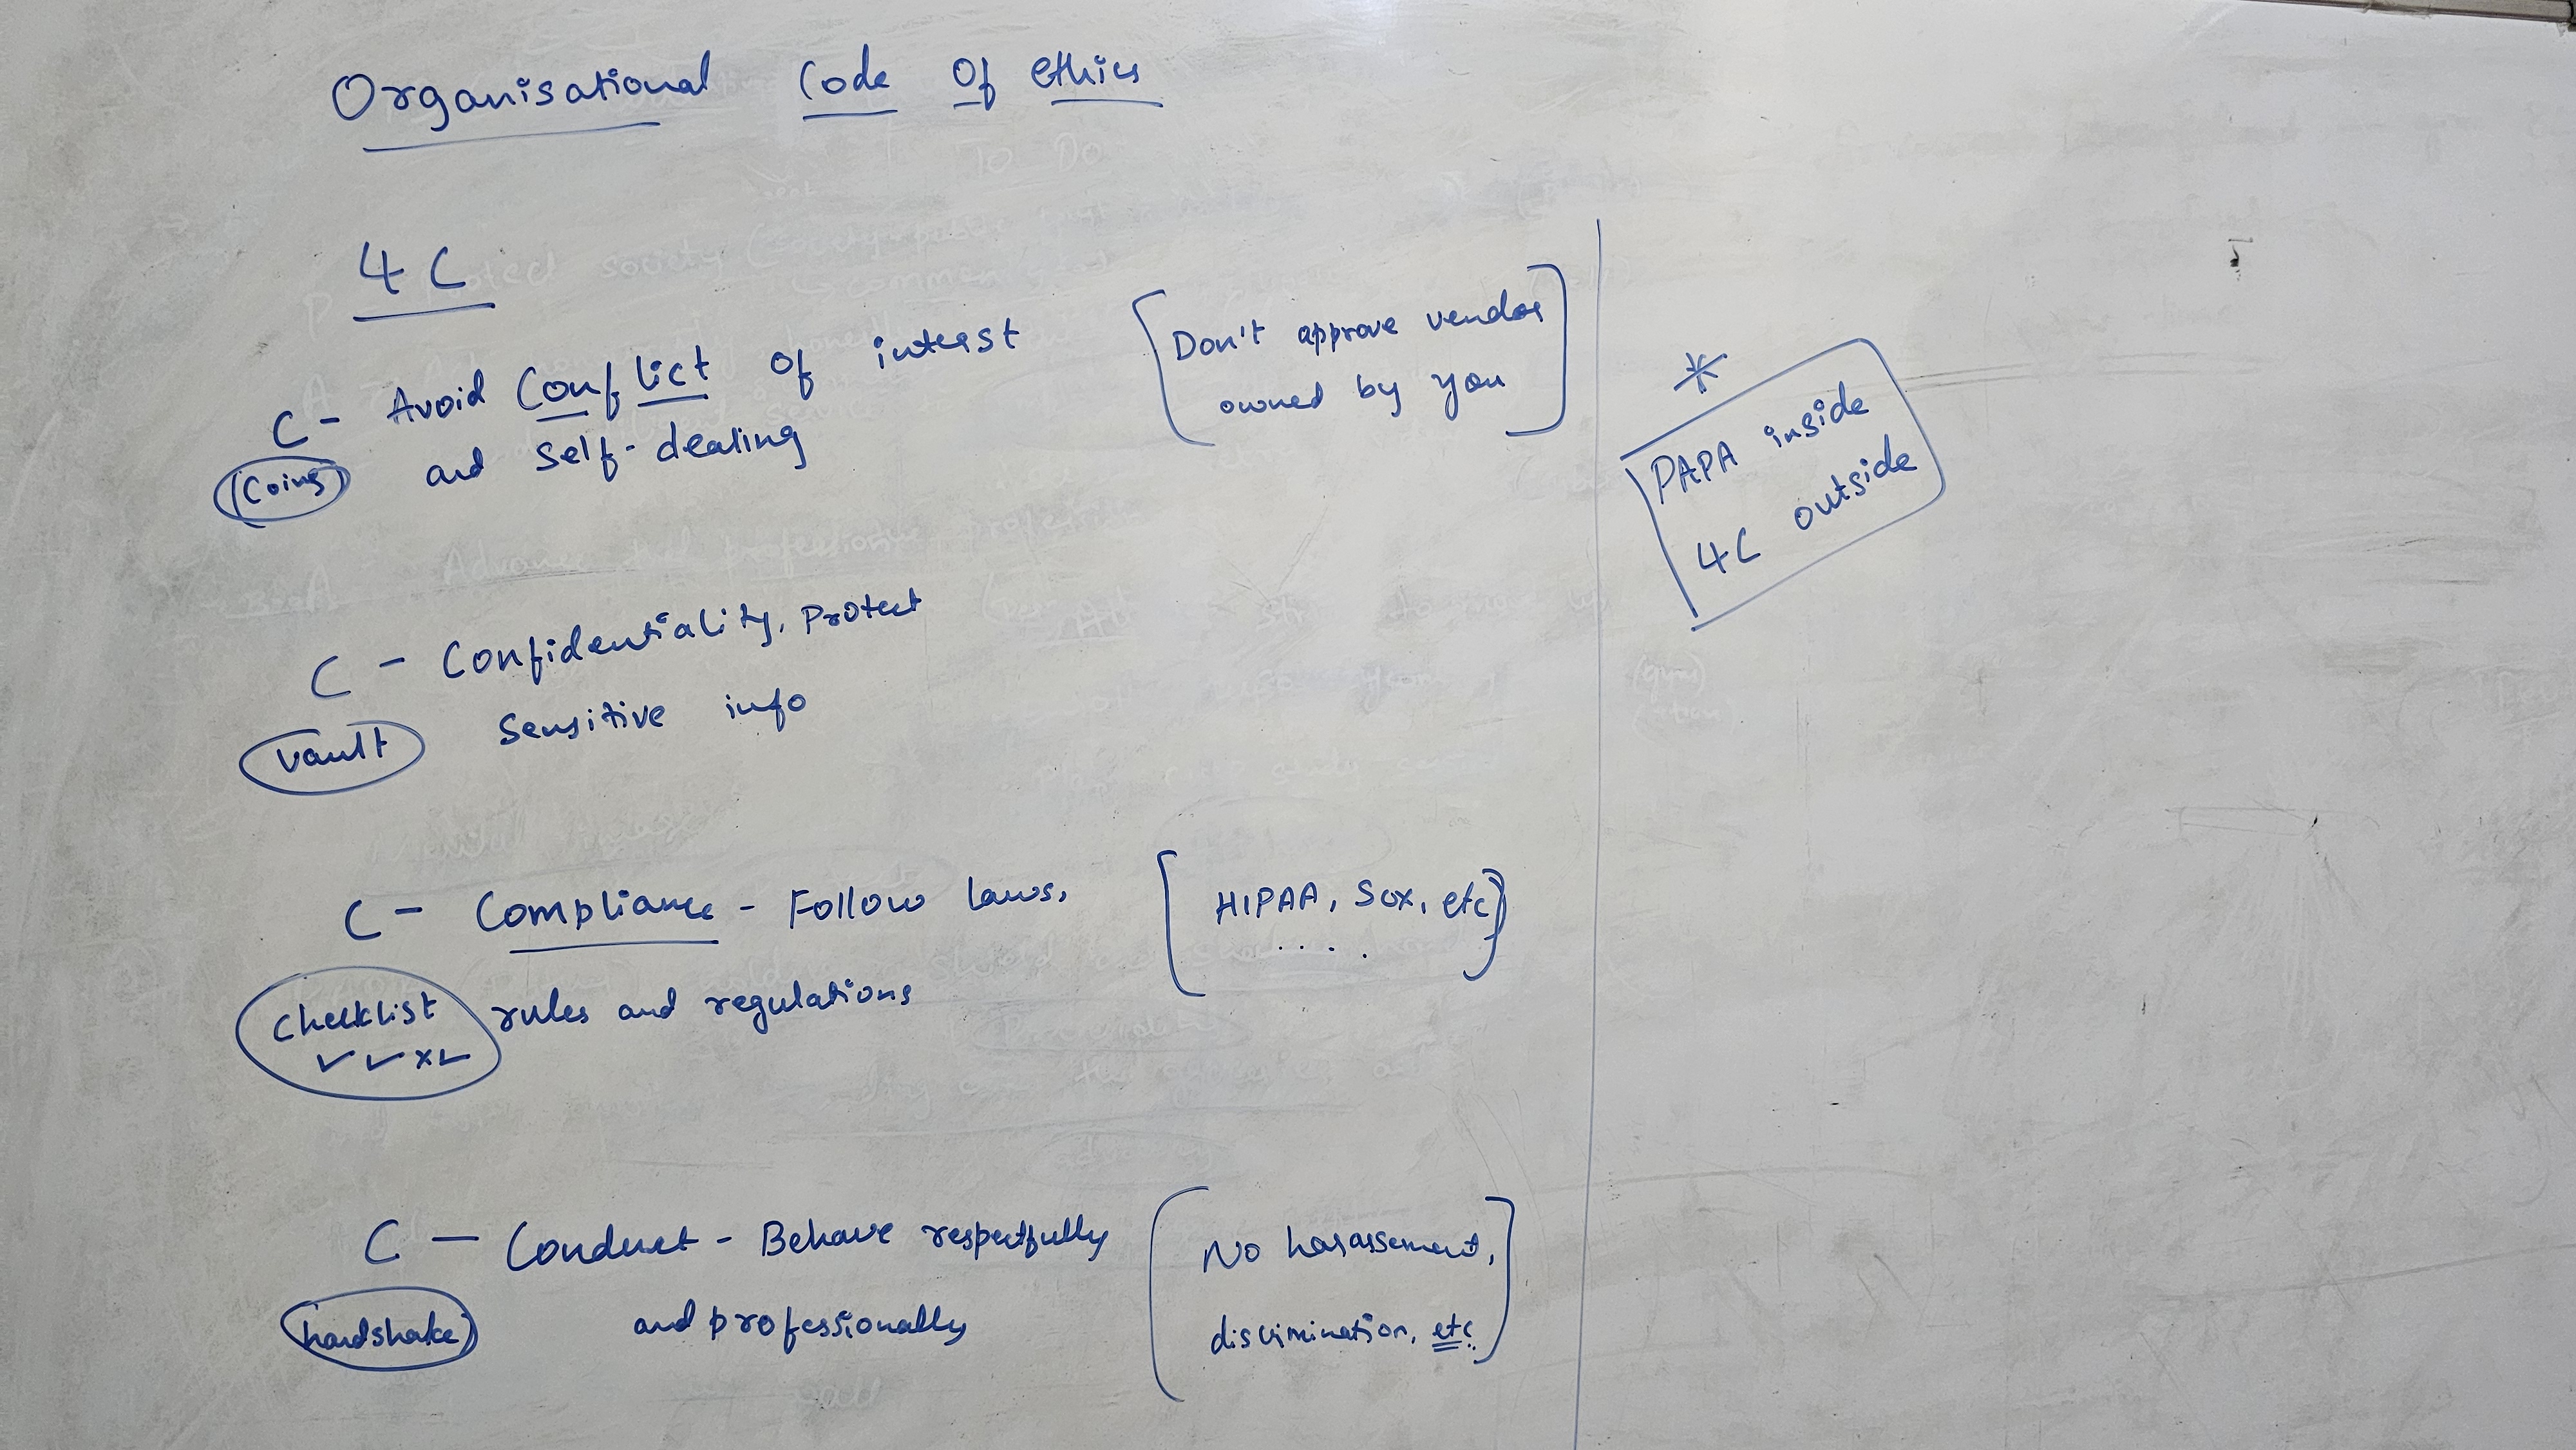 Organisational Code Of ethics
4C
C - Avoid Conflict of interest
and Self-dealing
Coins
[Don't approve vendor
owned by you]
*
PAPA inside
4C outside
C - Confidentiality, Protect
Sensitive info
vault
C - Compliance - Follow laws,
rules and regulations
Checklist
✓ ✓ x ✓
[HIPAA, SOX, etc]
. . . .
C - Conduct - Behave respectfully
and professionally
handshake
[No harassement,
discrimination, etc.]